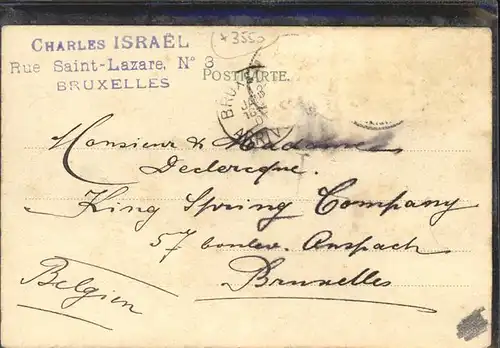 CHARLES ISRAËL
Rue Saint-Lazare, Nº 3
BRUXELLES
+3550
POSTKARTE.
Monsieur & Madame
Declercque.
King Spring Company
57 boulev. Anspach
Bruxelles
Belgien